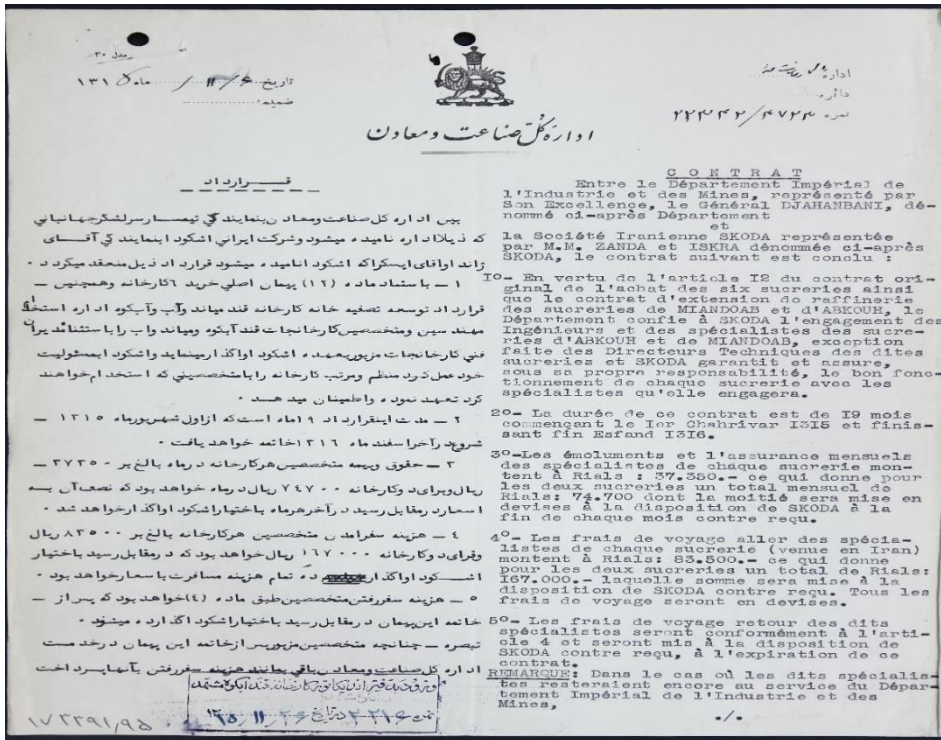 مدل ۳۰
تاریخ ۶ / ۱۱ / ماه ۱۳۱۵
ضمیمه:
اداره
دائره
نمره ۲۲۳۴۲/۴۷۲۳
ادارهٔ کلّ صناعت ومعادن
قـــرارداد
بین اداره کل صناعت ومعادن بنمایندگی تیمسار سرلشگر جهانبانی
که ذیلا اداره نامیده میشود وشرکت ایرانی اشکودا بنمایندگی آقای
زاندا واقای ایسکرا که اشکودا نامیده میشود قرارداد ذیل منعقد میگردد ۰
۱ – باستناد ماده (۱۲) پیمان اصلی خرید ۶ کارخانه وهمچنین –
قرارداد توسعه تصفیه خانه کارخانه قند میاندوآب وآبکوه اداره استخدام
مهندسین ومتخصصین کارخانجات قند آبکوه ومیاندوآب را باستثنائ مدیران
فنی کارخانجات مزبور بعهده اشکودا واگذار مینماید واشکودا بمسئولیت
خود عمل کرد منظم ومرتب کارخانه را بامتخصصینی که استخدام خواهند
کرد تعهد نموده واطمینان میدهد ۰
۲ – مدت اینقرارداد ۱۹ ماه است که ازاول شهریورماه ۱۳۱۵
شروع ودرآخر اسفند ماه ۱۳۱۶ خاتمه خواهد یافت ۰
۳ – حقوق وبیمه متخصصین هرکارخانه درماه بالغ بر ۳۷۳۵۰ –
ریال وبرای دوکارخانه ۷۴۷۰۰ ریال درماه خواهد بود که نصف آن به
اسعار درمقابل رسید درآخر هرماه باختیار اشکودا واگذار خواهد شد ۰
۴ – هزینه سفر آمدن متخصصین هرکارخانه بالغ بر ۸۳۵۰۰ ریال
وبرای دوکارخانه ۱۶۷۰۰۰ ریال خواهد بود که درمقابل رسید باختیار
اشکودا واگذار ده تمام هزینه مسافرت باسعار خواهد بود ۰
۵ – هزینه سفر رفتن متخصصین طبق ماده (۴) خواهد بود که پس از –
خاتمه این پیمان درمقابل رسید باختیار اشکودا واگذارده میشود ۰
تبصره – چنانچه متخصصین مزبور پس ازخاتمه این پیمان درخدمت
اداره کل صناعت ومعادن باقی بمانند هزینه سفر رفتن بآنها پرداخت
C O N T R A T
Entre le Département Impérial de
l'Industrie et des Mines, représenté par
Son Excellence, le Général DJAHANBANI, dé-
nommé ci-après Département
et
la Société Iranienne SKODA représentée
par M.M. ZANDA et ISKRA dénommée ci-après
SKODA, le contrat suivant est conclu :
1o- En vertu de l'article I2 du contrat ori-
ginal de l'achat des six sucreries ainsi
que le contrat d'extension de raffinerie
des sucreries de MIANDOAB et d'ABKOUH, le
Département confie à SKODA l'engagement des
Ingénieurs et des spécialistes des sucre-
ries d'ABKOUH et de MIANDOAB, exception
faite des Directeurs Techniques des dites
sucreries et SKODA garantit et assure,
sous sa propre responsabilité, le bon fonc-
tionnement de chaque sucrerie avec les
spécialistes qu'elle engagera.
2o- La durée de ce contrat est de I9 mois
commençant le Ier Chahrivar I3I5 et finis-
sant fin Esfand I3I6.
3o-Les émoluments et l'assurance mensuels
des spécialistes de chaque sucrerie mon-
tent à Rials : 37.350.- ce qui donne pour
les deux sucreries un total mensuel de
Rials: 74.700 dont la moitié sera mise en
devises à la disposition de SKODA à la
fin de chaque mois contre reçu.
4o- Les frais de voyage aller des spécia-
listes de chaque sucrerie (venue en Iran)
montent à Rials: 83.500.- ce qui donne
pour les deux sucreries un total de Rials:
I67.000.- laquelle somme sera mise à la
disposition de SKODA contre reçu. Tous les
frais de voyage seront en devises.
5o- Les frais de voyage retour des dits
spécialistes seront conformément à l'arti-
cle 4 et seront mis à la disposition de
SKODA contre reçu, à l'expiration de ce
contrat.
REMARQUE: Dans le cas où les dits spécialis-
tes resteraient encore au service du Dépar-
tement Impérial de l'Industrie et des
Mines,
./.
۱۷۳۳۹۱/۹۵